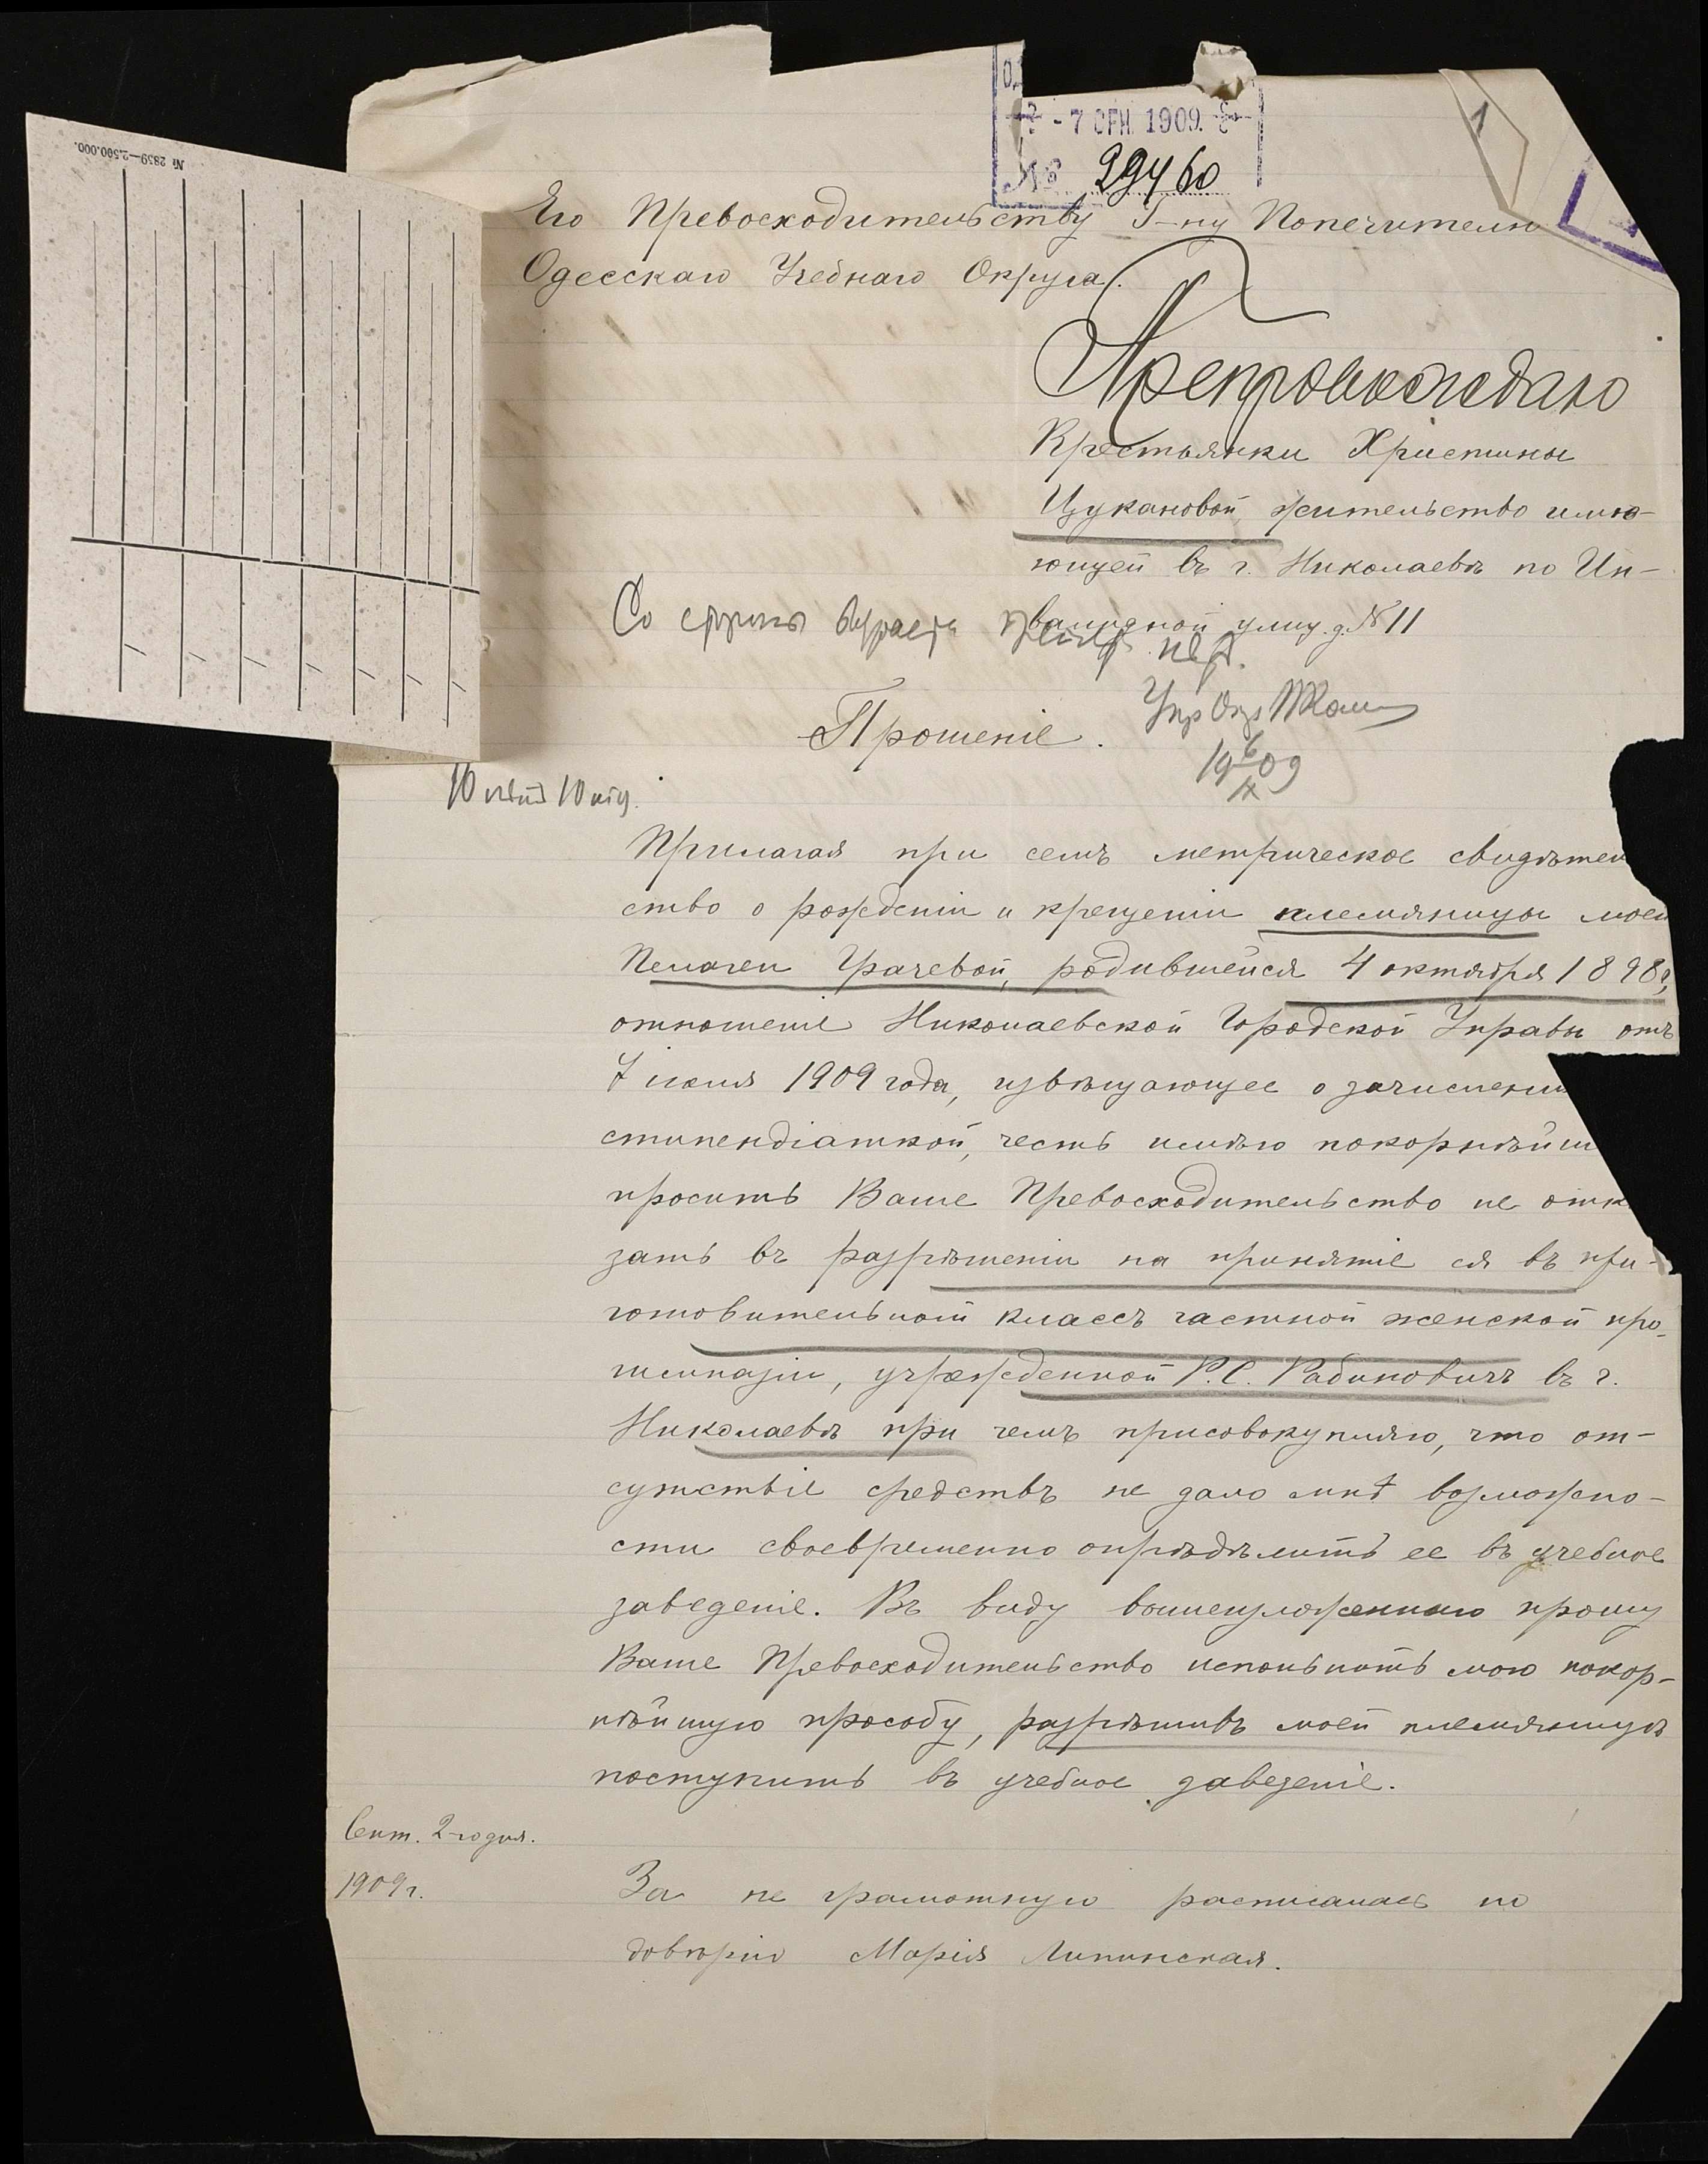 - 7 СЕН. 1909.
№ 29460
1
№ 2859—2.500.000.
Его Превосходительству Г-ну Попечителю
Одесскаго Учебнаго Округа.
Препровождаю
Крестьянки Христины
Цукановой жительство имѣ-
ющей въ г. Николаевѣ по Ин-
валидной улиц. д. № 11
Со стороны возраста препят. нѣт.
Упр Окр
19 6/IX 09
Прошеніе.
10 лѣтъ 10 мѣс.
Прилагая при семъ метрическое свидѣтель
ство о рожденіи и крещеніи племянницы моей
Пелагеи Грачевой, родившейся 4 октября 1898 г,
отношеніе Николаевской Городской Управы отъ
7 іюля 1909 года, извѣщающее о зачисленіи
стипендіаткой, честь имѣю покорнѣйш
просить Ваше Превосходительство не отка
зать въ разрѣшеніи на принятіе ея въ при-
готовительный классъ частной женской про-
гимназіи, учрежденной Р. С. Рабиновичъ въ г.
Николаевѣ при чемъ присовокупляю, что от-
сутствіе средствъ не дало мнѣ возможно-
сти своевременно опрѣдѣлить ее въ учебное
заведеніе. Въ виду вышеизложеннаго прошу
Ваше Превосходительство исполнить мою покор-
нѣйшую прособу, разрѣшивъ моей племянницѣ
поступить въ учебное заведеніе.
Сент. 2-го дня.
1909 г.
За не грамотную расписалась по
довѣрію Марія Липинская.